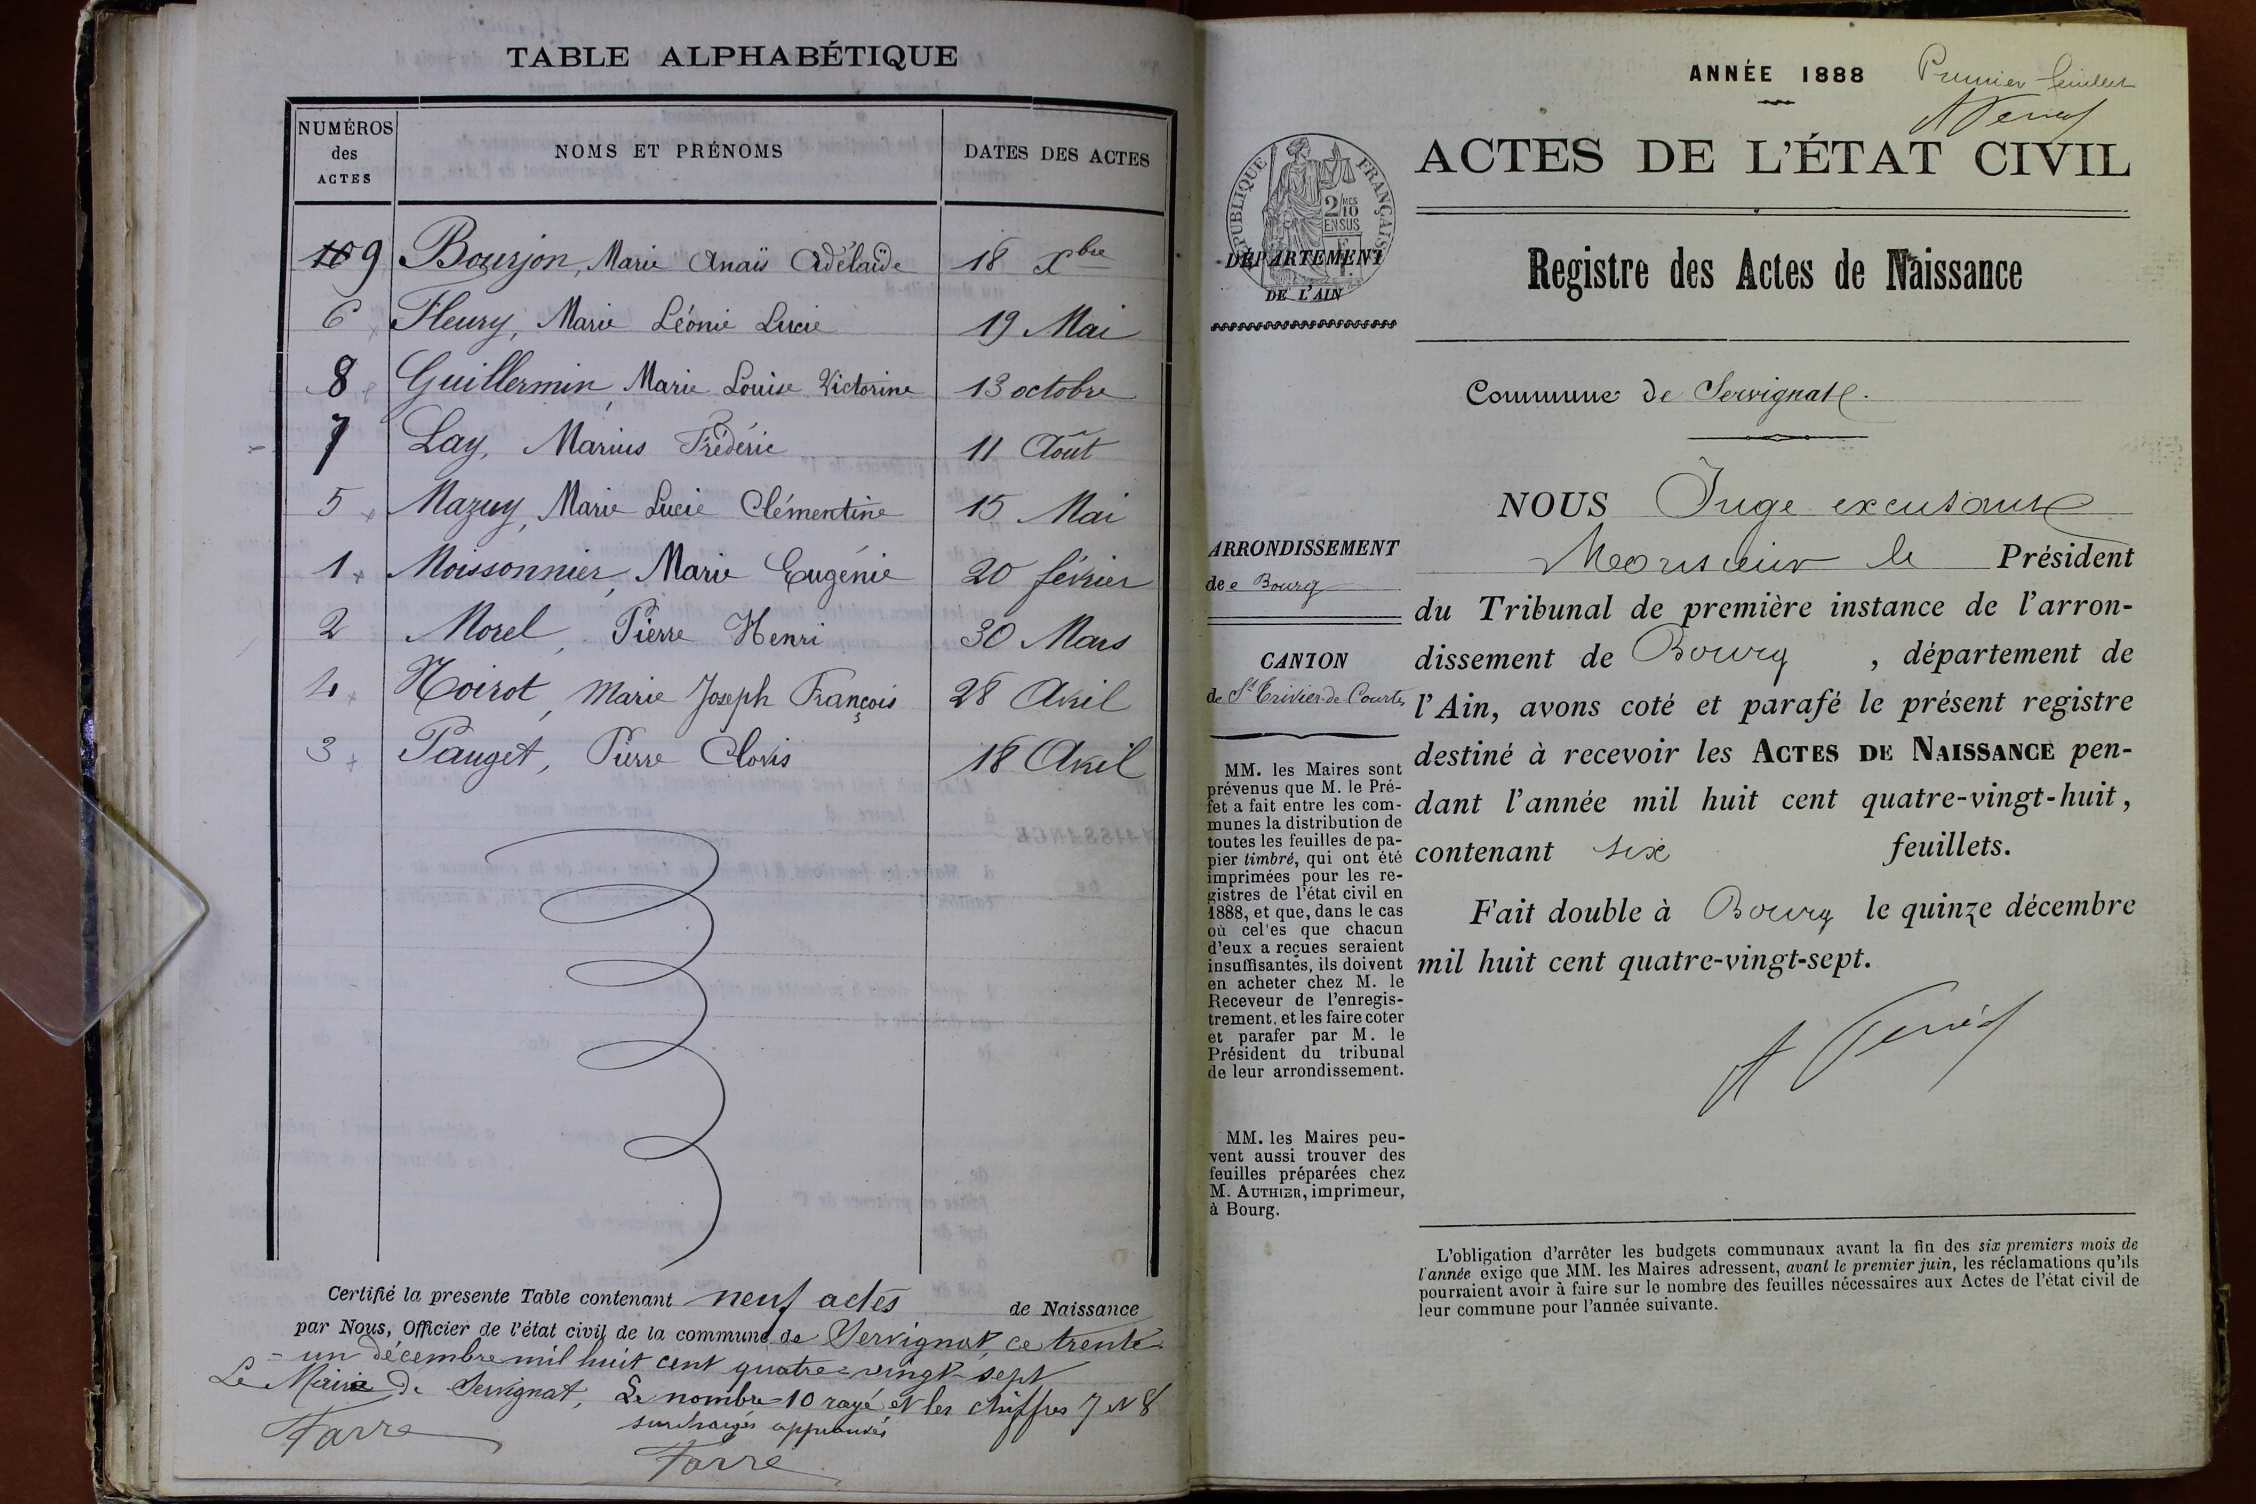 TABLE ALPHABÉTIQUE
NUMÉROS des ACTES
NOMS ET PRÉNOMS
DATES DES ACTES
10 9 Bourjon, Marie Anaïs Adélaïde 18 Xbre
6 Fleury, Marie Léonie Lucie 19 Mai
8 Guillermin, Marie Louise Victorine 13 octobre
7 Lay, Marius Frédéric 11 Août
5 Mazuy, Marie Lucie Clémentine 15 Mai
1 Moissonnier, Marie Eugénie 20 février
2 Morel, Pierre Henri 30 Mars
4 Noirot, Marie Joseph François 28 Avril
3 Pauget, Pierre Clovis 18 Avril
Certifié la presente Table contenant neuf actes de Naissance
par Nous, Officier de l'état civil de la commune de Servignat, ce trente
- un décembre mil huit cent quatre-vingt-sept
Le Maire de Servignat, Le nombre 10 rayé et les chiffres 7 et 8
surchargés approuvés
Farre
Farre
ANNÉE 1888
Premier feuillet
ACTES DE L'ÉTAT CIVIL
RÉPUBLIQUE FRANÇAISE
2 MES 10
EN SUS
DÉPARTEMENT
DE L'AIN
Registre des Actes de Naissance
Commune de Servignat
ARRONDISSEMENT
de Bourg
CANTON
de St Trivier-de-Courtes
MM. les Maires sont
prévenus que M. le Pré-
fet a fait entre les com-
munes la distribution de
toutes les feuilles de pa-
pier timbré, qui ont été
imprimées pour les re-
gistres de l'état civil en
1888, et que, dans le cas
où cel'es que chacun
d'eux a reçues seraient
insuffisantes, ils doivent
en acheter chez M. le
Receveur de l'enregis-
trement, et les faire coter
et parafer par M. le
Président du tribunal
de leur arrondissement.
MM. les Maires peu-
vent aussi trouver des
feuilles préparées chez
M. AUTHIER, imprimeur,
à Bourg.
NOUS Juge excusant
Monsieur le Président
du Tribunal de première instance de l'arron-
dissement de Bourg, département de
l'Ain, avons coté et parafé le présent registre
destiné à recevoir les ACTES DE NAISSANCE pen-
dant l'année mil huit cent quatre-vingt-huit,
contenant six feuillets.
Fait double à Bourg le quinze décembre
mil huit cent quatre-vingt-sept.
L'obligation d'arrêter les budgets communaux avant la fin des six premiers mois de
l'année exige que MM. les Maires adressent, avant le premier juin, les réclamations qu'ils
pourraient avoir à faire sur le nombre des feuilles nécessaires aux Actes de l'état civil de
leur commune pour l'année suivante.